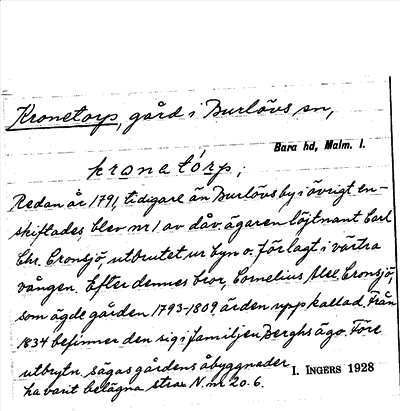 Kronetorp, gård i Burlövs sn,
Bara hd, Malm. l.
kronetórp;
Redan år 1791, tidigare än Burlövs by i övrigt en-
skiftades, blev nr 1 av dåv. ägaren löjtnant Carl
Chr. Cronsjö utbrutet ur byn o. förlagt i västra
vången. Efter dennes bror, Cornelius Alex. Cronsjö,
som ägde gården 1793-1809 är den uppkallad. Från
1834 befinner den sig i familjen Berghs ägo. Före
utbrytn. sägas gårdens åbyggnader
ha varit belägna strax N. nr 20. 6.
I. INGERS 1928